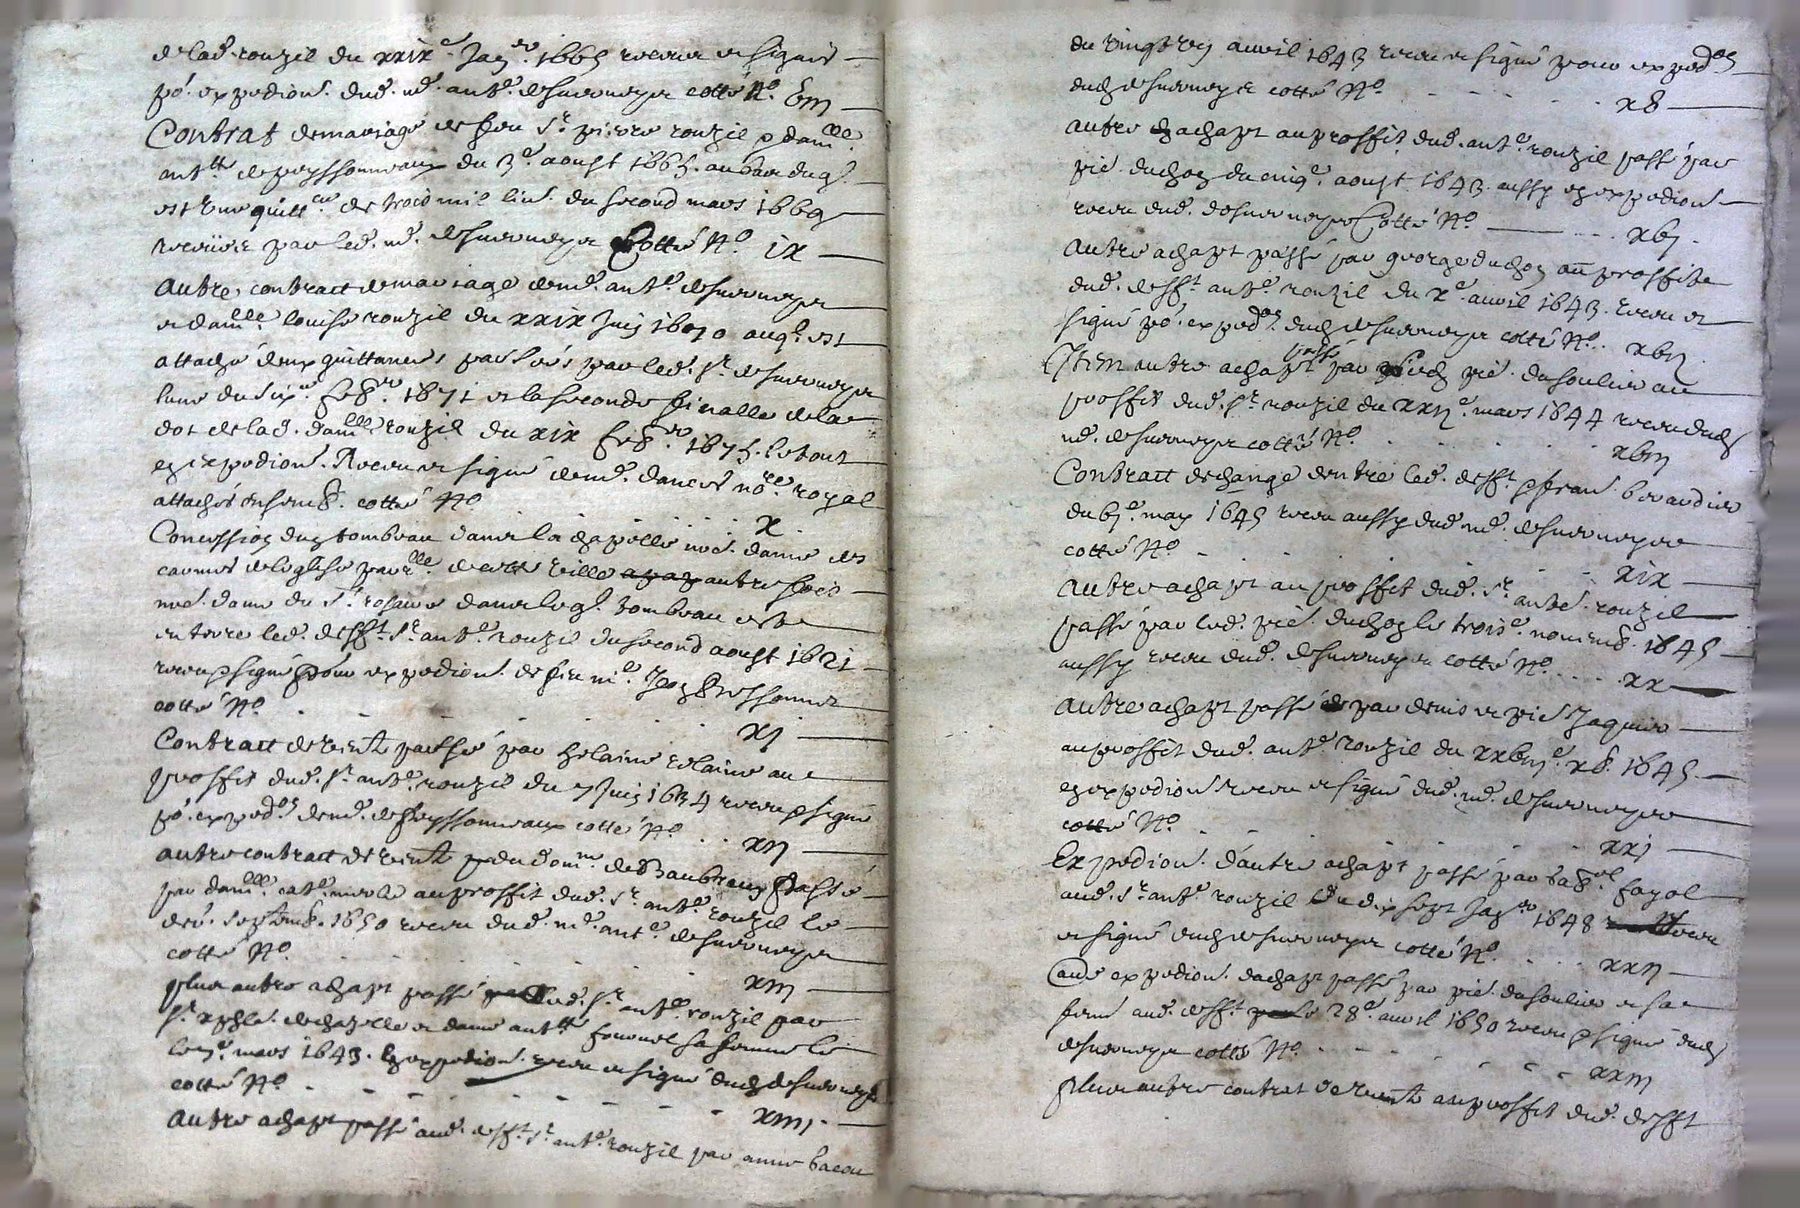 de lad. rouzil du xxix.e Janer. 1665 receu et signés
po. expedion. dud. me. ante. desuerneyx cotté No. biij
Contrat de mariage de feu Sr. pierre rouzil et damlle.
antte de peyssonneaux du 3.e aoust 1665. au bas duql.
est une quittce de trois mil liv. du second mars 1669
receüe par led. me. desuerneyx Cotté No ix
autre contract de mariage de me. ante. desuerneyx
et damlle. louise rouzil du xxix Juin 1670 auql. est
attaché deux quittances passées par led. Sr. desuerneyx
lune du six.me feb.er 1671 et la seconde finalle de la
dot de lad. damlle rouzil du xix feber 1675. le tout
en expedion. Receu et signé de me. dances nore. royal
attachés ensemb. cotté No x
Concession dun tombeau dans la chapelle nre. dame des
carmes de leglise parlle. de cette ville autrefois
nre. dame du St. rosaire dans leql. tombeau este
enterre led. defft. Sr. ante. rouzil du second aoust 1621
receu et signé pour expedion. de feu me. Jean bressonnet
cotté No. xj
Contract de vente passé par helaine au
proffit dud. Sr. ante. rouzil du 7 Juin 1634 receu et signé
po. expedon de me. de peyssonneaux cotté No. xij
autre contract de vente du dom.ne de passé
par damlle. au proffit dud. Sr. ante. rouzil le
der. septemb. 1650 receu dud. me. ante. desuerneyx
cotté No. xiij
plus autre achapt passé aud. Sr. ante. rouzil par
Sr. de chapelle et dame antte fournel sa femme le
mars 1643. en expedion receu et signé dud. desuerneyx
cotté No. xiiij
autre achapt passé aud. defft. Sr. ante. rouzil par anne bacou
du vingt troi auril 1643 receu et signé pour expedon
dud. desuerneyx cotté No. xb
autre achapt au proffit dud. ante. rouzil passé par
pie. duchon du cinqe. aoust 1643. aussy en expedion
receu dud. desuerneyx Cotté No xbj
autre achapt passé par george duchon au proffit
dud. defft. ante. rouzil du xe. auril 1643. receu et
signé po. expedon. dud. desuerneyx cotté No. xbij
Item autre achapt passé par pie. dusoulier au
proffit dud. Sr. rouzil du xxije. mars 1644 receu dud.
me. desuerneyx cotté No. xbiij
Contract deschange dentre led. defft. et fran. berardier
du bje. may 1645 receu aussy dud. me. desuerneyx
cotté No xix
autre achapt au proffit dud. Sr. ante. rouzil
passé par led. pie. duchon le troise. nouemb. 1645
aussy receu dud. desuerneyx cotté No. xx
autre achapt passé par denis et pie Jaquier
au proffit dud. ante. rouzil du xxbiije. xb. 1645.
en expedion receu et signé dud. me. desuerneyx
cotté No. xxj
Expedion. d'autre achapt passé par fayol
aud. Sr. ante. rouzil du dix sept Janer 1648 receu
et signé dud. desuerneyx cotté No. xxij
autre expedion. dachapt passé par pie. dusoulier et sa
feme aud. defft. le 28e. auril 1650 receu et signé dud.
desuerneyx cotté No. xxiij
plus autre contrat de vente au proffit dud. defft